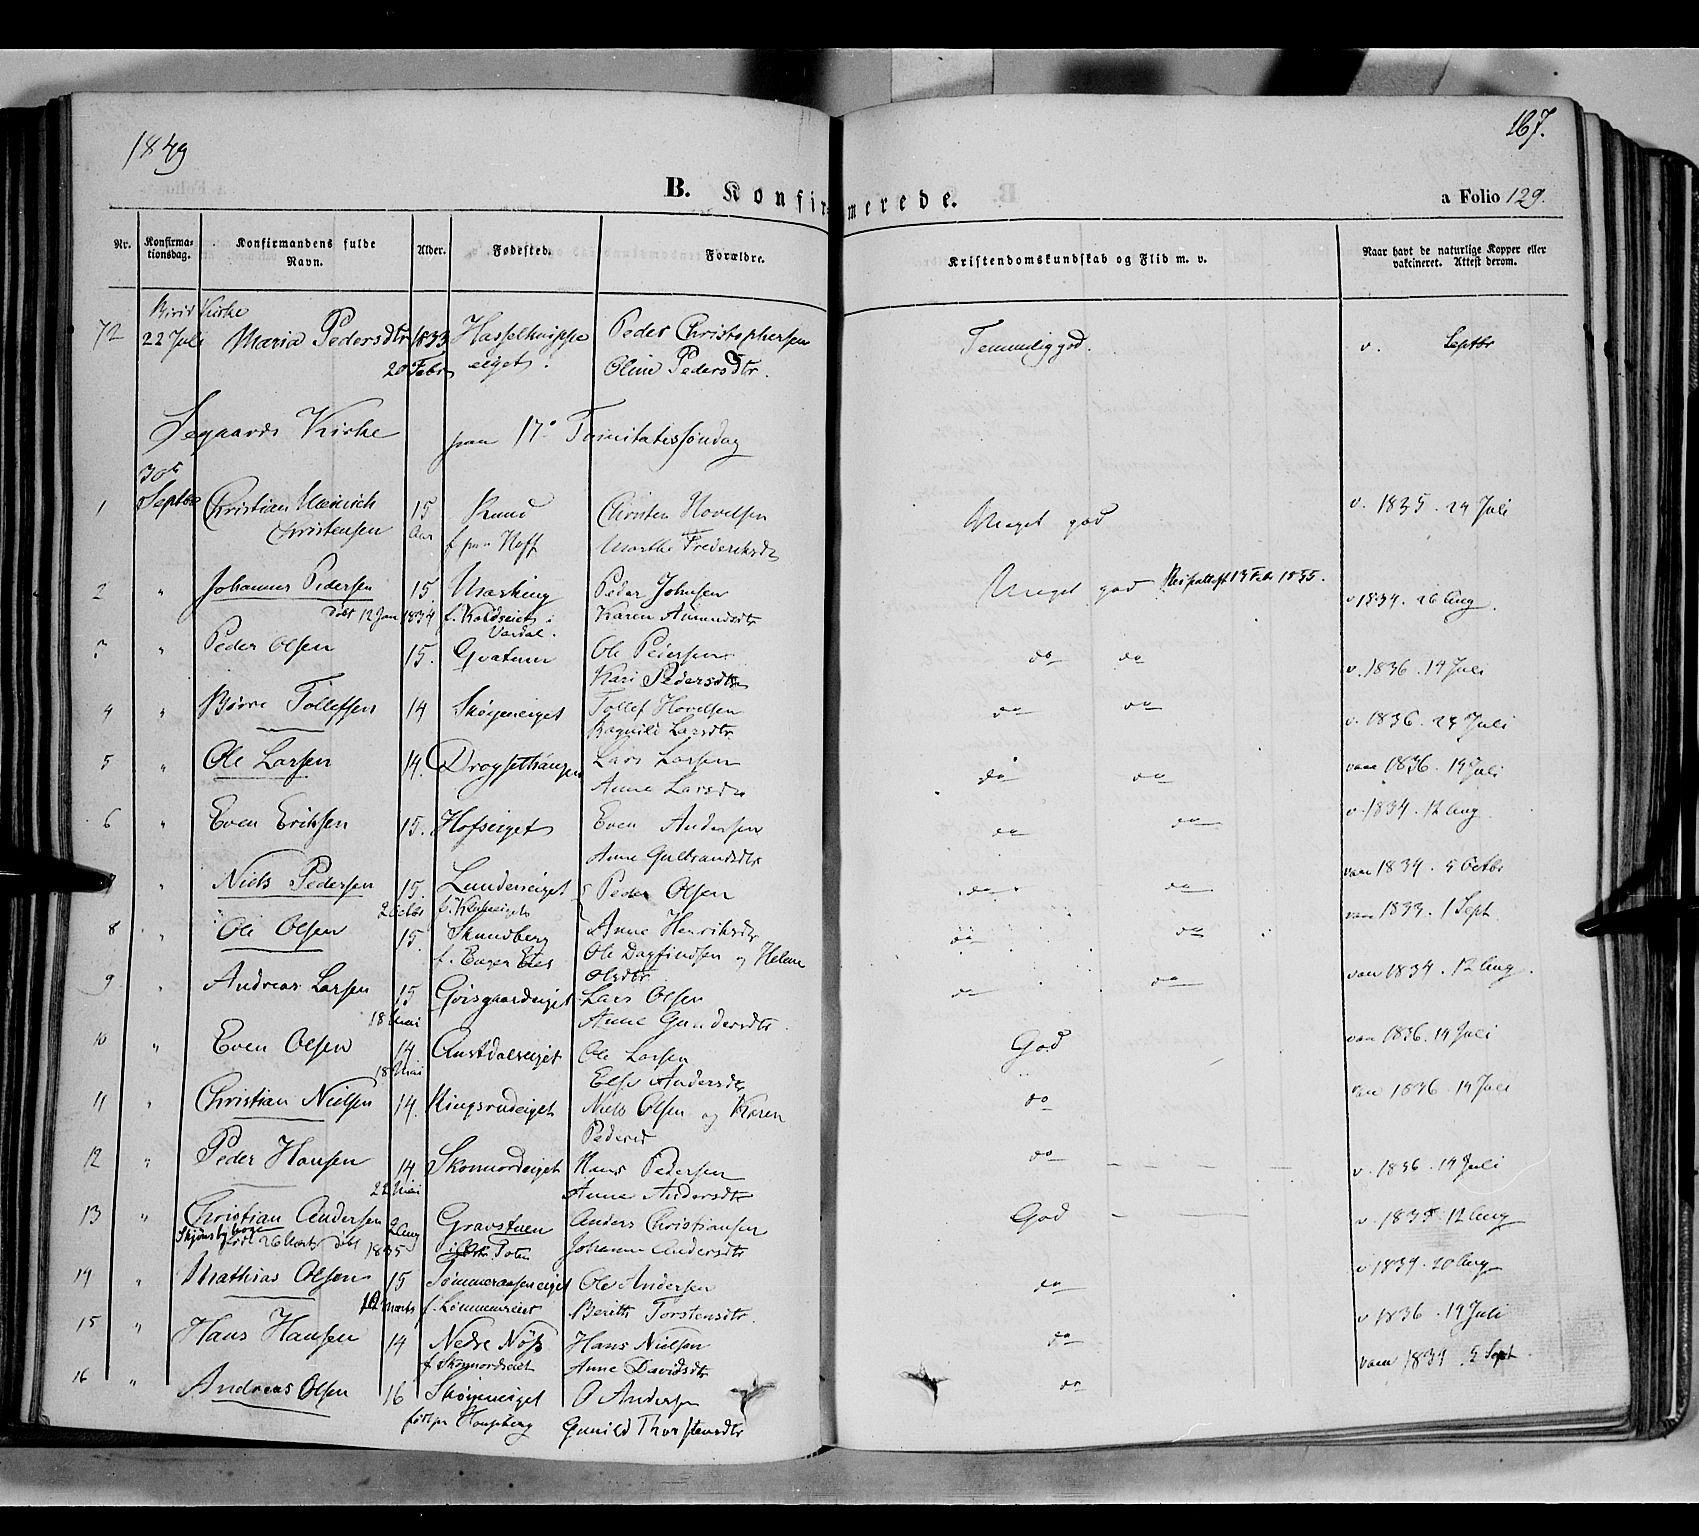 1849
167.
B. Konfirmerede.
a Folio 129.
Nr.
Konfirma-
tionsdag.
Konfirmandens fulde
Navn.
Alder.
Fødested.
Forældre.
Kristendomskundskab og Flid m. v.
Naar havt de naturlige Kopper eller
vakcineret. Attest derom.
Birid Kirke
72 22 Juli Maria Pedersdtr 1833 Peder Christophersen Temmelig god. v. Septbr
20 Febr eiget. Oline Pedersdtr.
Segaards Kirke paa 17e Trinitatissøndag
30te
1 Septbr Christian Meinich 15 Christen Hovelsen Meget god v. 1835. 24 Juli
Christensen Aar f. paa Hoff Marthe Frederiksdtr
2 " Johannes Pedersen 15. Peder Johnsen Meget god 1835. v 1834. 26 Aug.
Døbt 12 Jan 1834 Vardal. Karen Amundsdtr
3 " Peder Olsen 15. Ole Pedersen do do v. 1836. 19 Juli
Kari Pedersdtr
4 " Børre Tollefsen 14 Skøieneiget Tollef Hovelsen do do v. 1836. 24 Juli
Ragnild Larsdtr
5 " Ole Larsen 14. Lars Larsen do do vaa 1836. 19 Juli
Anne Larsdtr
6 " Even Eriksen 15. Hofseiget Even Andersen do do v 1834. 12 Aug.
Anne Gulbrandsdtr
7 " Niels Pedersen 15. Lundeneiget Peder Olsen do do vaa 1834. 5 Octbr
2 Octbr
8 " Ole Olsen 15. Skundberg Anne Henriksdtr do do vaa 1833. 1 Sept
Ole Dagfindsen og Helene
9 " Andreas Larsen 15 Olsdtr do do vaa 1834. 12 Aug.
18 Mai Lars Olsen
Anne Gundersdtr.
10 " Even Olsen 14 Austdalseiget Ole Larsen God vaa 1836. 19 Juli
18 Mai Else Andersdtr
11 " Christian Nielsen 14. Ringsrudeiget Niels Olsen og Karen do vaa 1836. 19 Juli
Pedersd
12 " Peder Hansen 14 Skonnordeiget Hans Pedersen do v. 1836. 19 Juli
22 Mai Anne Andersdtr
13 " Christian Andersen 2 Aug Gravstuen Anders Christiansen God v 1835 12 Aug
født 26 Marts døbt 1835 Johanne Andersdtr
14 " Mathias Olsen 15 Ole Andersen do v 1834. 20 Aug
Marts Berith Torstensdtr.
15 " Hans Hansen 14 Nedre Nøss Hans Nielsen do v 1836. 19 Juli
f. Skonnordeiet Anne Davidsdtr
16 " Andreas Olsen 16 Skøieneiget O Andersen do vaa 1834 5 Sept.
født pa Gunild Thorstensdtr